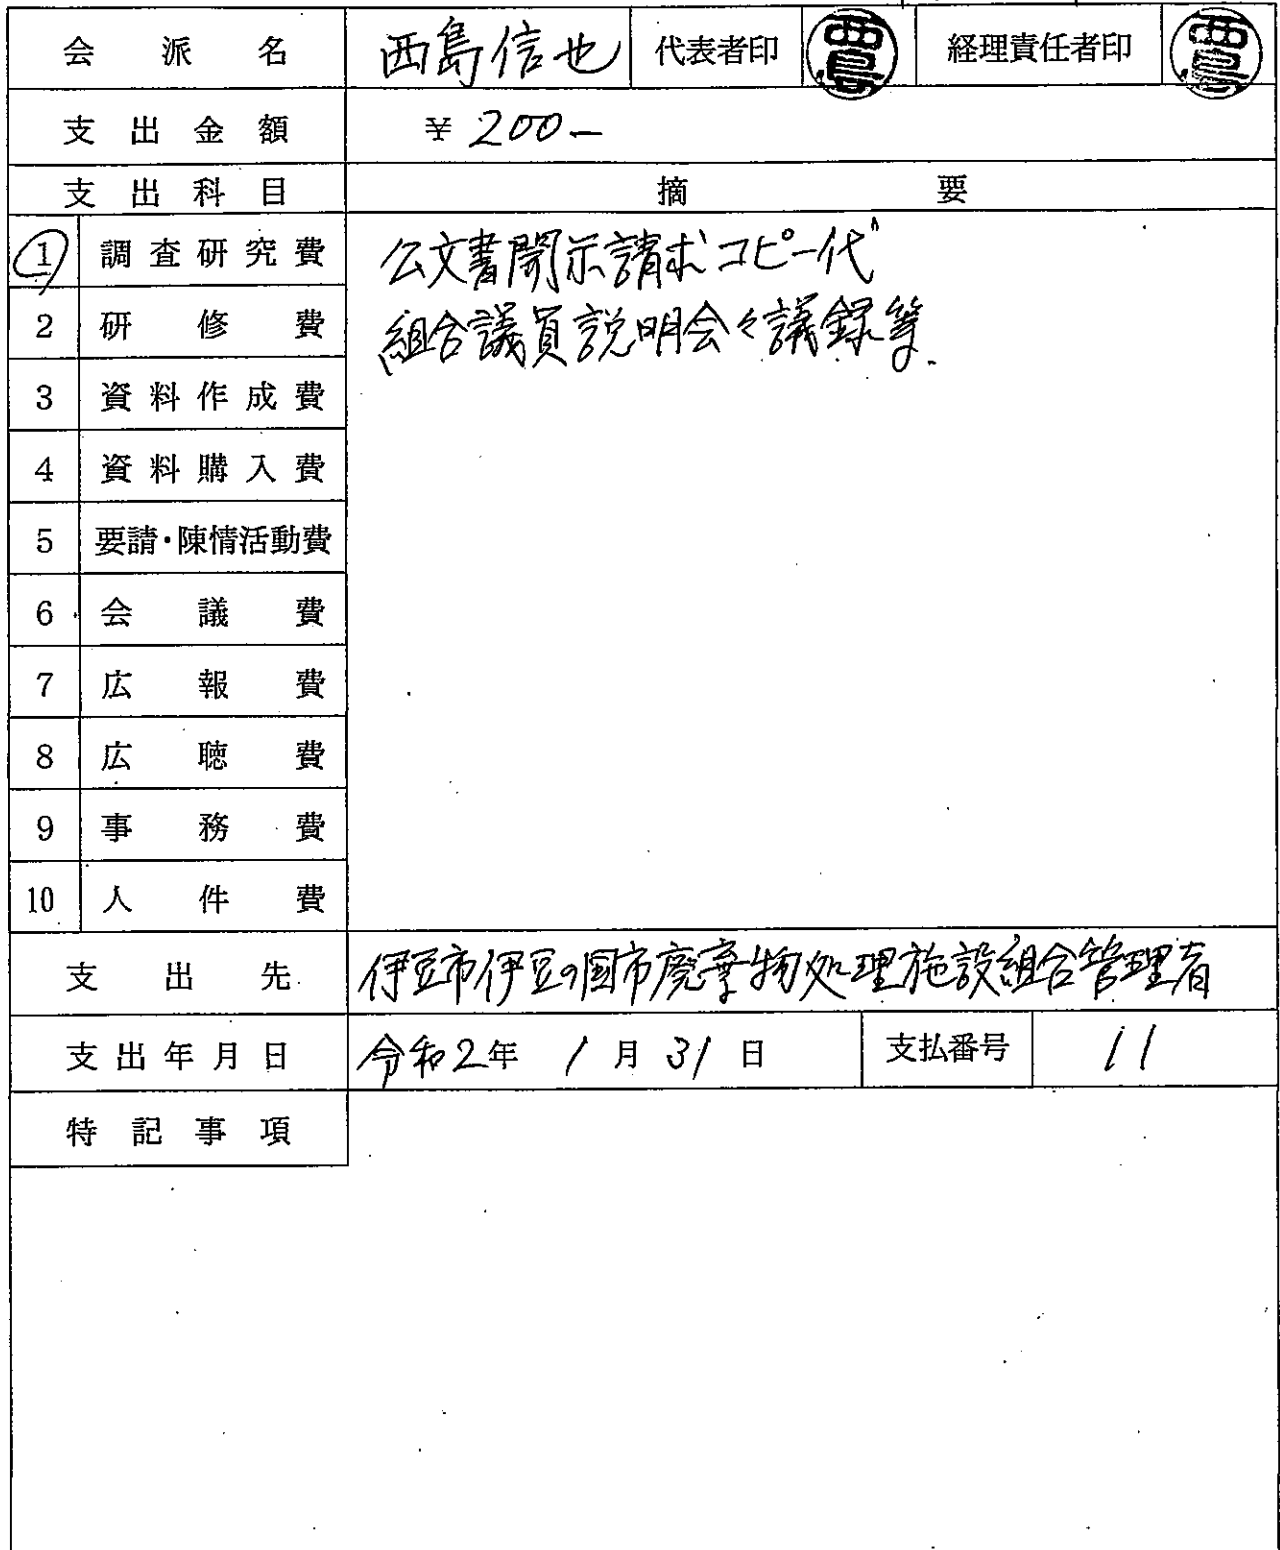 会派名 西島信也 代表者印 西島 経理責任者印 西島
支出金額 ¥200-
支出科目 摘要
1 調査研究費 公文書開示請求コピー代
2 研修費 組合議員説明会々議録等.
3 資料作成費
4 資料購入費
5 要請・陳情活動費
6 会議費
7 広報費
8 広聴費
9 事務費
10 人件費
支出先 伊豆市伊豆の国市廃棄物処理施設組合管理者
支出年月日 令和2年1月31日 支払番号 11
特記事項